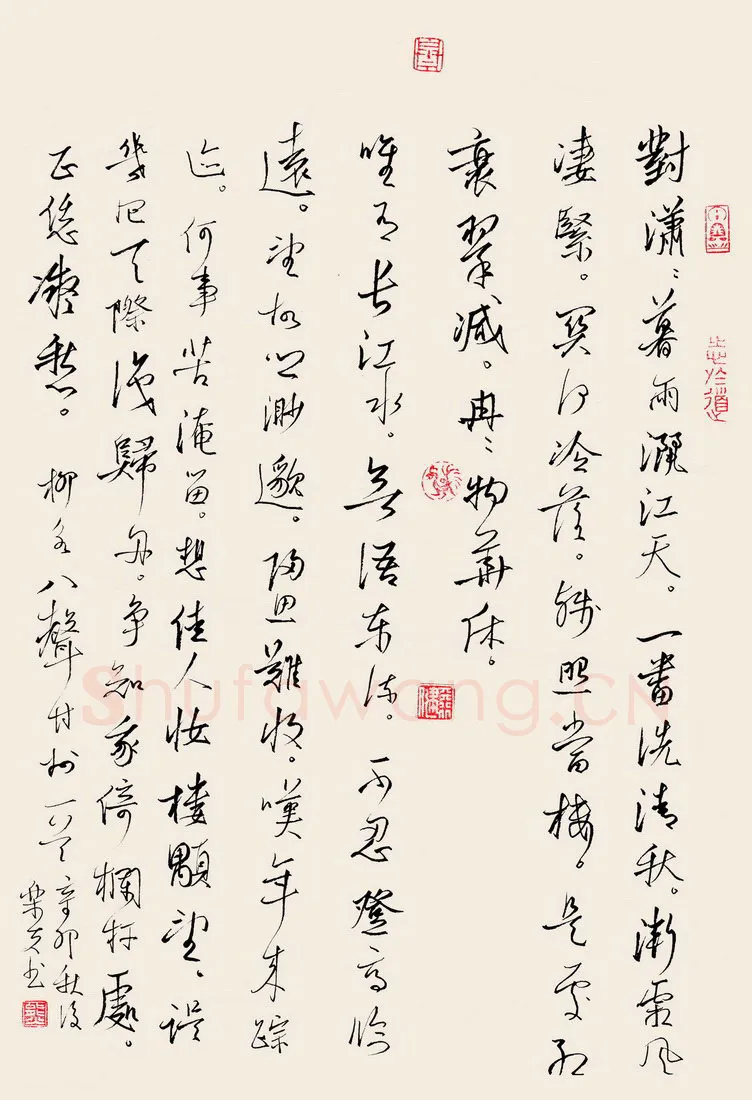 對瀟〻暮雨灑江天。一番洗清秋。漸霜風
凄緊。關河冷落。殘照當樓。是處紅
衰翠減。冉〻物華休。
唯有长江水。無語东流。不忍登高臨
遠。望故鄉渺邈。歸思難收。嘆年來踪
迹。何事苦淹留。想佳人妝樓顒望、誤
幾回天際識歸舟。争知我倚欄杆處。
正恁凝愁。 柳永八聲甘州一首 辛卯秋後
书
志於道
Shufawang.CN